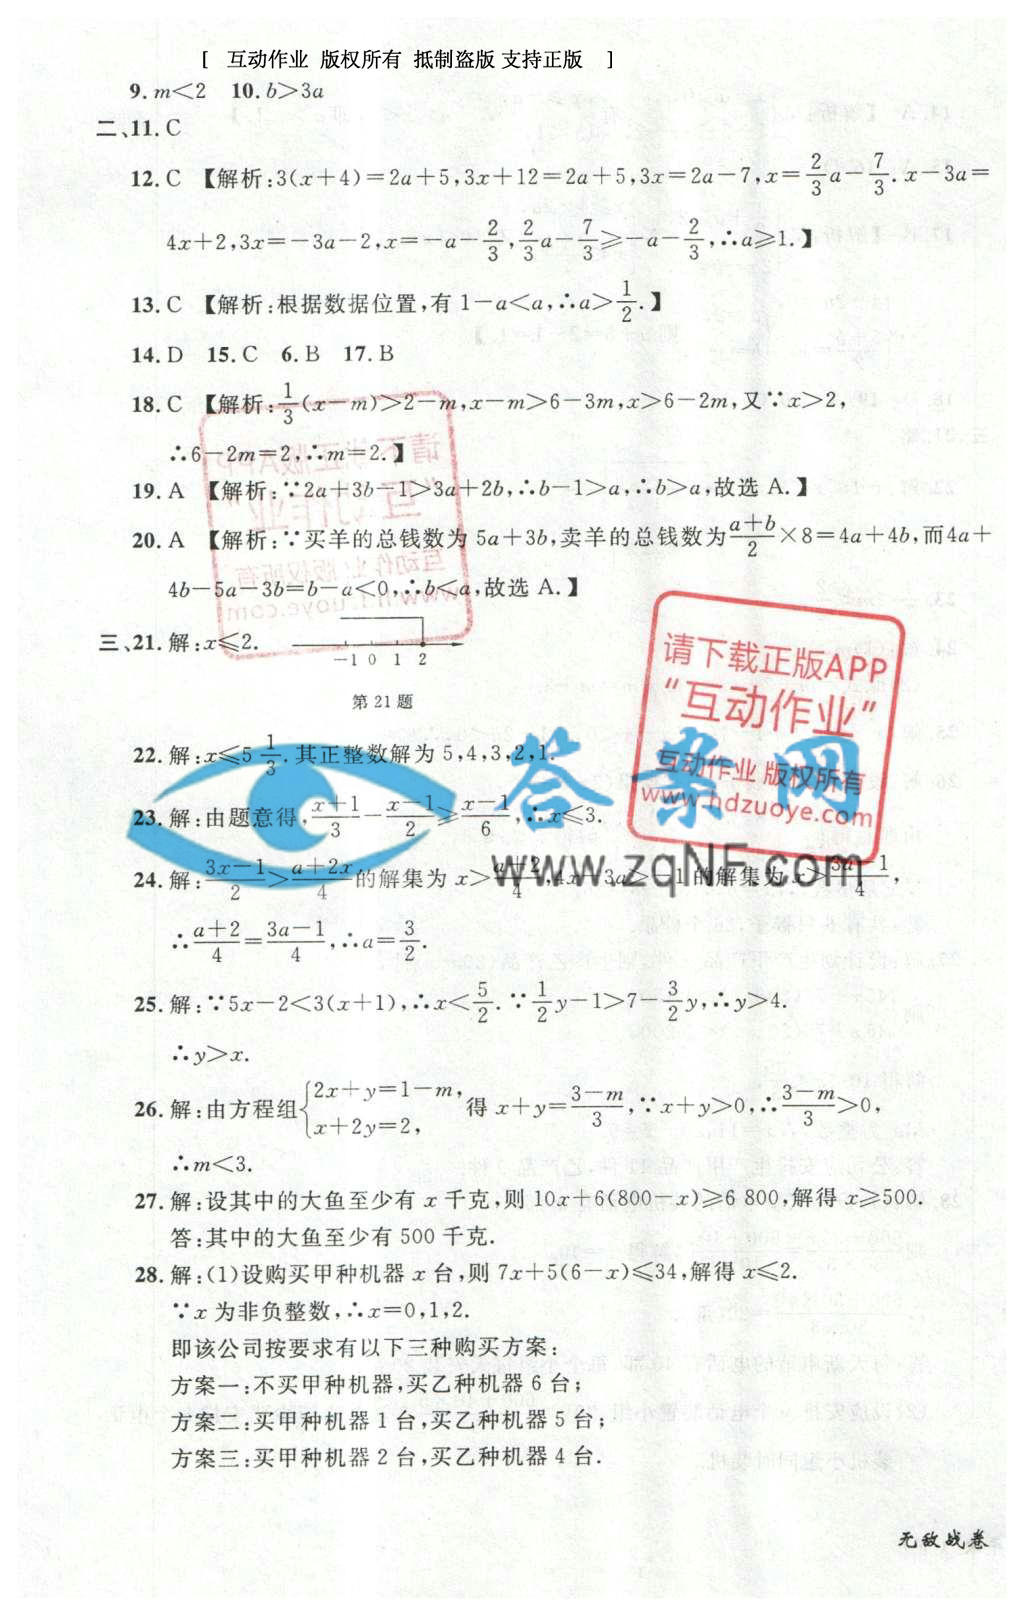 [ 互动作业 版权所有 抵制盗版 支持正版 ]
9. m<2 10. b>3a
二、11. C
12. C 【解析:3(x+4)=2a+5,3x+12=2a+5,3x=2a-7,x=2/3a-7/3. x-3a=
4x+2,3x=-3a-2,x=-a-2/3,2/3a-7/3≥-a-2/3,∴a≥1.】
13. C 【解析:根据数据位置,有 1-a<a,∴a>1/2.】
14. D 15. C 6. B 17. B
18. C 【解析:1/3(x-m)>2-m,x-m>6-3m,x>6-2m,又∵x>2,
∴6-2m=2,∴m=2.】
19. A 【解析:∵2a+3b-1>3a+2b,∴b-1>a,∴b>a,故选 A.】
20. A 【解析:∵买羊的总钱数为 5a+3b,卖羊的总钱数为(a+b)/2×8=4a+4b,而4a+
4b-5a-3b=b-a<0,∴b<a,故选 A.】
三、21. 解:x≤2.
-1 0 1 2
第 21 题
请下载正版APP
“互动作业”
互动作业 版权所有
www.hdzuoye.com
22. 解:x≤5 1/3. 其正整数解为 5,4,3,2,1.
答案网
www.zqNF.com
23. 解:由题意得,(x+1)/3-(x-1)/2≥(x-1)/6,∴x≤3.
24. 解:(3x-1)/2>(a+2x)/4的解集为 x>(a+2)/4,4x-3a>-1 的解集为 x>(3a-1)/4,
∴(a+2)/4=(3a-1)/4,∴a=3/2.
25. 解:∵5x-2<3(x+1),∴x<5/2. ∵1/2y-1>7-3/2y,∴y>4.
∴y>x.
26. 解:由方程组{2x+y=1-m, x+2y=2, 得 x+y=(3-m)/3,∵x+y>0,∴(3-m)/3>0,
∴m<3.
27. 解:设其中的大鱼至少有 x 千克,则 10x+6(800-x)≥6 800,解得 x≥500.
答:其中的大鱼至少有 500 千克.
28. 解:(1)设购买甲种机器 x 台,则 7x+5(6-x)≤34,解得 x≤2.
∵x 为非负整数,∴x=0,1,2.
即该公司按要求有以下三种购买方案:
方案一:不买甲种机器,买乙种机器 6 台;
方案二:买甲种机器 1 台,买乙种机器 5 台;
方案三:买甲种机器 2 台,买乙种机器 4 台.
无敌战卷